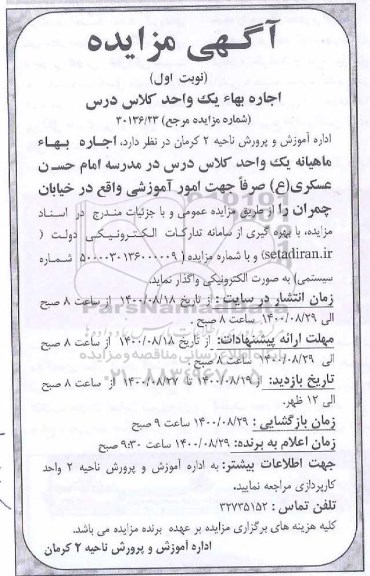 آگهی مزایده
(نوبت اول)
اجاره بهاء یک واحد کلاس درس
(شماره مزایده مرجع ۳۰۱۳۶/۲۳)
اداره آموزش و پرورش ناحیه ۲ کرمان در نظر دارد، اجاره بهاء
ماهیانه یک واحد کلاس درس در مدرسه امام حسن
عسکری(ع) صرفاً جهت امور آموزشی واقع در خیابان
چمران را از طریق مزایده عمومی و با جزئیات مندرج در اسناد
مزایده، با بهره گیری از سامانه تدارکات الکترونیکی دولت (
setadiran.ir) و با شماره مزایده ( ۵۰۰۰۰۳۰۱۳۶۰۰۰۰۰۹ شماره
سیستمی) به صورت الکترونیکی واگذار نماید.
زمان انتشار در سایت : از تاریخ ۱۴۰۰/۰۸/۱۸ از ساعت ۸ صبح
الی ۱۴۰۰/۰۸/۲۹ ساعت ۸ صبح .
مهلت ارائه پیشنهادات: از تاریخ ۱۴۰۰/۰۸/۱۸ از ساعت ۸ صبح
الی ۱۴۰۰/۰۸/۲۹ ساعت ۸ صبح
تاریخ بازدید: از ۱۴۰۰/۰۸/۱۹ تا ۱۴۰۰/۰۸/۲۷ از ساعت ۸ صبح
الی ۱۲ ظهر.
زمان بازگشایی : ۱۴۰۰/۰۸/۲۹ ساعت ۹ صبح
زمان اعلام به برنده: ۱۴۰۰/۰۸/۲۹ ساعت ۹:۳۰ صبح
جهت اطلاعات بیشتر: به اداره آموزش و پرورش ناحیه ۲ واحد
کارپردازی مراجعه نمایید.
تلفن تماس : ۳۲۷۳۵۱۵۲
کلیه هزینه های برگزاری مزایده بر عهده برنده مزایده می باشد.
اداره آموزش و پرورش ناحیه ۲ کرمان